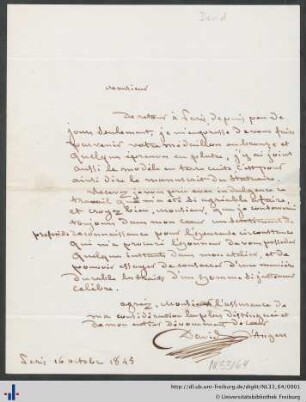 David
Monsieur
De retour à Paris depuis peu de
jours seulement, je m'empresse de vous faire
parvenir votre médaillon en bronze et
quelques épreuves en plâtre, j'y ai joint
aussi le modèle en terre cuite c'est pour
ainsi dire le manuscrit du Statuaire.
Recevez je vous prie avec indulgence ce
travail qui m'a été si agréable à faire,
et croyez bien, monsieur, que je conserverai
toujours dans mon cœur un sentiment de
profonde reconnaissance pour l'heureuse circonstance
qui m'a procuré l'honneur de vous posséder
quelques instants dans mon atelier, et de
pouvoir essayer de consacrer d'une manière
durable les traits d'un homme si justement
célèbre.
agréez, Monsieur l'assurance de
ma considération la plus distinguée et
de mon entier dévouement de cœur
David d'Angers
Paris 16 octobre 1845
http://dl.ub.uni-freiburg.de/diglit/NL33_64/0001
Universitätsbibliothek Freiburg